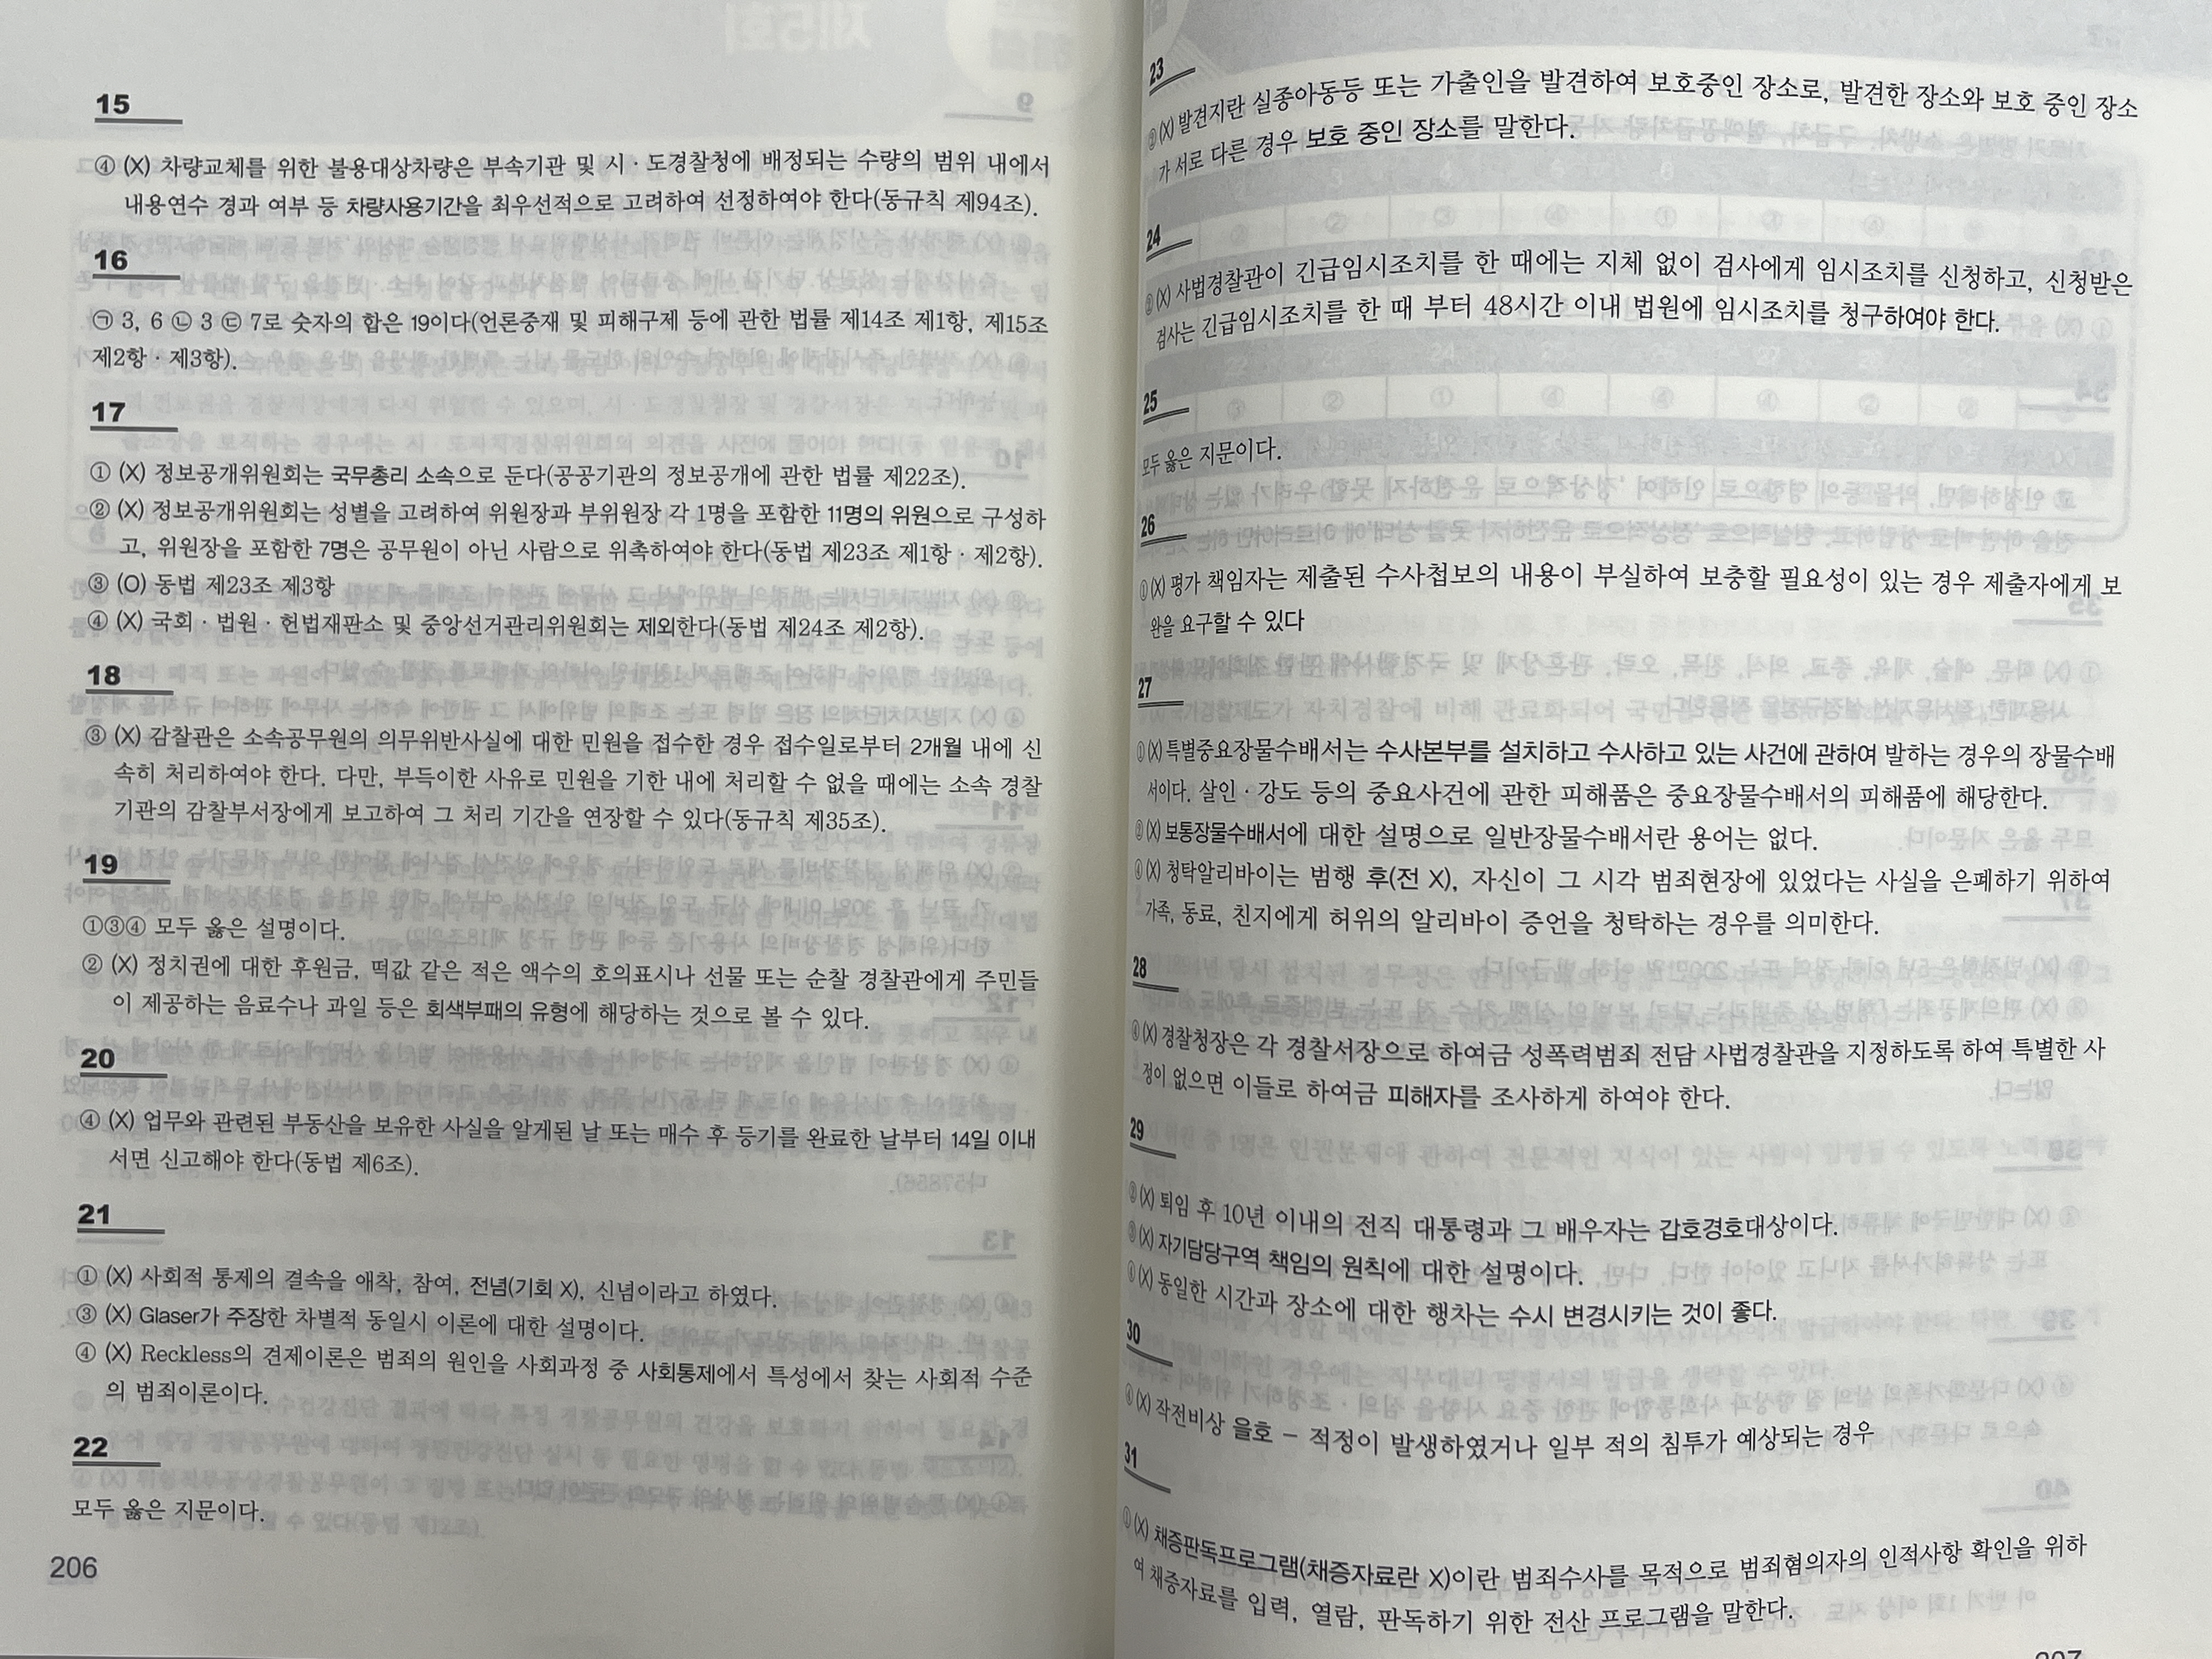 15
④ (X) 차량교체를 위한 불용대상차량은 부속기관 및 시·도경찰청에 배정되는 수량의 범위 내에서
내용연수 경과 여부 등 차량사용기간을 최우선적으로 고려하여 선정하여야 한다(동규칙 제94조).
16
㉠ 3, 6 ㉡ 3 ㉢ 7로 숫자의 합은 19이다(언론중재 및 피해구제 등에 관한 법률 제14조 제1항, 제15조
제2항·제3항).
17
① (X) 정보공개위원회는 국무총리 소속으로 둔다(공공기관의 정보공개에 관한 법률 제22조).
② (X) 정보공개위원회는 성별을 고려하여 위원장과 부위원장 각 1명을 포함한 11명의 위원으로 구성하
고, 위원장을 포함한 7명은 공무원이 아닌 사람으로 위촉하여야 한다(동법 제23조 제1항·제2항).
③ (O) 동법 제23조 제3항
④ (X) 국회·법원·헌법재판소 및 중앙선거관리위원회는 제외한다(동법 제24조 제2항).
18
③ (X) 감찰관은 소속공무원의 의무위반사실에 대한 민원을 접수한 경우 접수일로부터 2개월 내에 신
속히 처리하여야 한다. 다만, 부득이한 사유로 민원을 기한 내에 처리할 수 없을 때에는 소속 경찰
기관의 감찰부서장에게 보고하여 그 처리 기간을 연장할 수 있다(동규칙 제35조).
19
①③④ 모두 옳은 설명이다.
② (X) 정치권에 대한 후원금, 떡값 같은 적은 액수의 호의표시나 선물 또는 순찰 경찰관에게 주민들
이 제공하는 음료수나 과일 등은 회색부패의 유형에 해당하는 것으로 볼 수 있다.
20
④ (X) 업무와 관련된 부동산을 보유한 사실을 알게된 날 또는 매수 후 등기를 완료한 날부터 14일 이내
서면 신고해야 한다(동법 제6조).
21
① (X) 사회적 통제의 결속을 애착, 참여, 전념(기회 X), 신념이라고 하였다.
③ (X) Glaser가 주장한 차별적 동일시 이론에 대한 설명이다.
④ (X) Reckless의 견제이론은 범죄의 원인을 사회과정 중 사회통제에서 특성에서 찾는 사회적 수준
의 범죄이론이다.
22
모두 옳은 지문이다.
206
23
(X) 발견지란 실종아동등 또는 가출인을 발견하여 보호중인 장소로, 발견한 장소와 보호 중인 장소
가 서로 다른 경우 보호 중인 장소를 말한다.
24
(X) 사법경찰관이 긴급임시조치를 한 때에는 지체 없이 검사에게 임시조치를 신청하고, 신청받은
검사는 긴급임시조치를 한 때 부터 48시간 이내 법원에 임시조치를 청구하여야 한다.
25
모두 옳은 지문이다.
26
(X) 평가 책임자는 제출된 수사첩보의 내용이 부실하여 보충할 필요성이 있는 경우 제출자에게 보
완을 요구할 수 있다
27
(X) 특별중요장물수배서는 수사본부를 설치하고 수사하고 있는 사건에 관하여 발하는 경우의 장물수배
서이다. 살인·강도 등의 중요사건에 관한 피해품은 중요장물수배서의 피해품에 해당한다.
(X) 보통장물수배서에 대한 설명으로 일반장물수배서란 용어는 없다.
(X) 청탁알리바이는 범행 후(전 X), 자신이 그 시각 범죄현장에 있었다는 사실을 은폐하기 위하여
가족, 동료, 친지에게 허위의 알리바이 증언을 청탁하는 경우를 의미한다.
28
(X) 경찰청장은 각 경찰서장으로 하여금 성폭력범죄 전담 사법경찰관을 지정하도록 하여 특별한 사
정이 없으면 이들로 하여금 피해자를 조사하게 하여야 한다.
29
(X) 퇴임 후 10년 이내의 전직 대통령과 그 배우자는 갑호경호대상이다.
(X) 자기담당구역 책임의 원칙에 대한 설명이다.
(X) 동일한 시간과 장소에 대한 행차는 수시 변경시키는 것이 좋다.
30
(X) 작전비상 을호 – 적정이 발생하였거나 일부 적의 침투가 예상되는 경우
31
(X) 채증판독프로그램(채증자료란 X)이란 범죄수사를 목적으로 범죄혐의자의 인적사항 확인을 위하
여 채증자료를 입력, 열람, 판독하기 위한 전산 프로그램을 말한다.